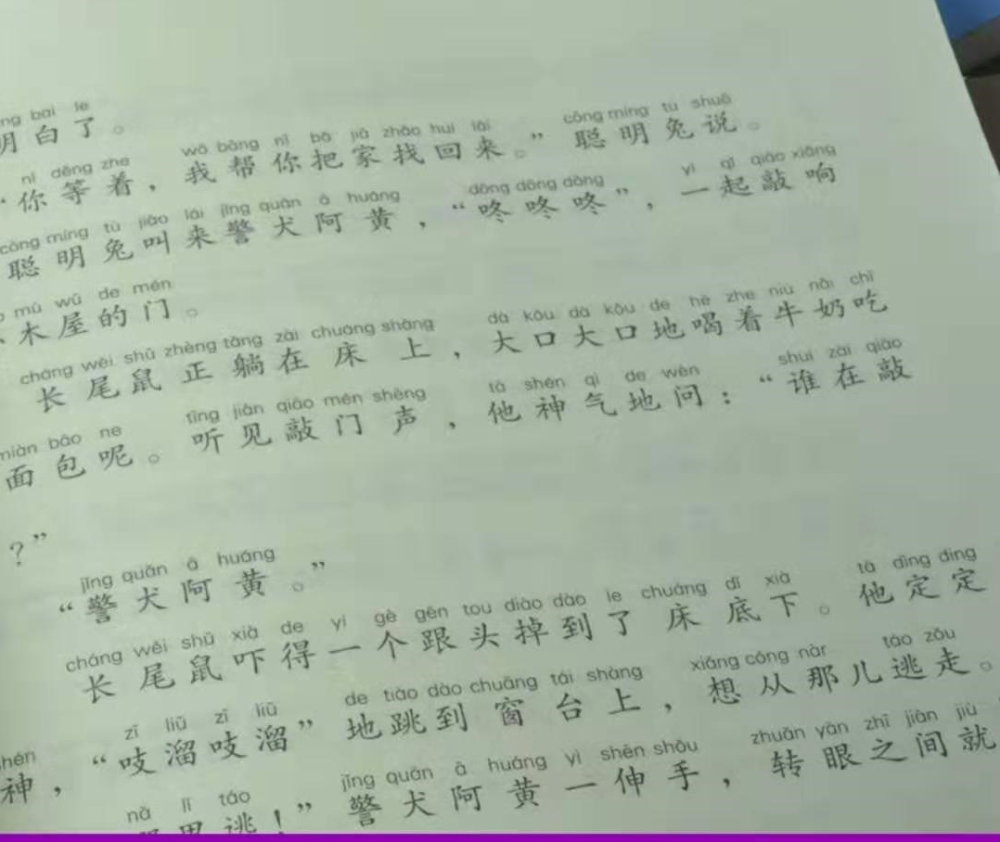 bai le
明白了。
nǐ děng zhe wǒ bāng nǐ bǎ jiā zhǎo huí lái cōng míng tù shuō
“你等着，我帮你把家找回来。”聪明兔说。
cōng míng tù jiào lái jǐng quǎn ā huáng dōng dōng dōng yì qǐ qiāo xiǎng
聪明兔叫来警犬阿黄，“咚咚咚”，一起敲响
mù wū de mén
木屋的门。
cháng wěi shǔ zhèng tǎng zài chuáng shàng dà kǒu dà kǒu de hē zhe niú nǎi chī
长尾鼠正躺在床上，大口大口地喝着牛奶吃
miàn bāo ne tīng jiàn qiāo mén shēng tā shén qì de wèn shuí zài qiāo
面包呢。听见敲门声，他神气地问：“谁在敲
？”
jǐng quǎn ā huáng
“警犬阿黄。”
cháng wěi shǔ xià de yí gè gēn tou diào dào le chuáng dǐ xià tā dìng dìng
长尾鼠吓得一个跟头掉到了床底下。他定定
shén zī liū zī liū de tiào dào chuāng tái shàng xiǎng cóng nàr táo zǒu
神，“吱溜吱溜”地跳到窗台上，想从那儿逃走。
nǎ lǐ táo jǐng quǎn ā huáng yì shēn shǒu zhuǎn yǎn zhī jiān jiù
里逃！”警犬阿黄一伸手，转眼之间就